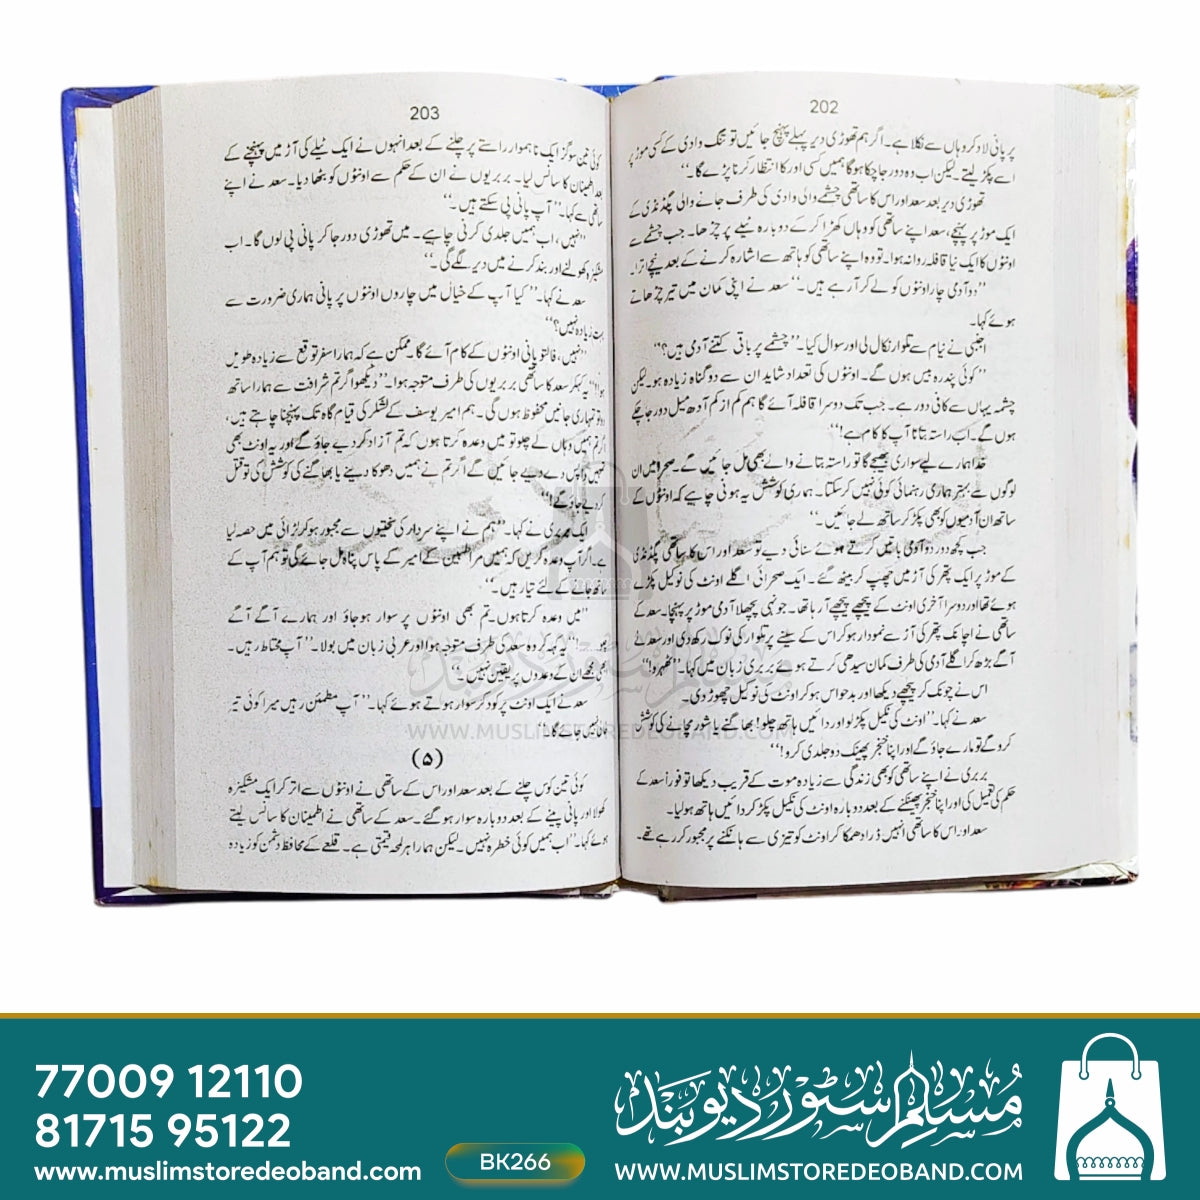 202
پر پانی لاد کر وہاں سے نکلا ہے۔ اگر ہم تھوڑی دیر پہلے پہنچ جائیں تو تنگ وادی کے کسی موڑ پر
اسے پکڑ لیتے۔ لیکن اب وہ دور جا چکا ہوگا ہمیں کسی اور کا انتظار کرنا پڑے گا۔‘‘
تھوڑی دیر بعد سعد اور اس کا ساتھی چشمے والی وادی کی طرف جانے والی پگڈنڈی کے
ایک موڑ پر پہنچے، سعد اپنے ساتھی کو وہاں کھڑا کر کے دوبارہ ٹیلے پر چڑھا۔ جب چشمے سے
اونٹوں کا ایک نیا قافلہ روانہ ہوا۔ تو وہ اپنے ساتھی کو ہاتھ سے اشارہ کرنے کے بعد نیچے اترا۔
’’دو آدمی چار اونٹوں کو لے کر آ رہے ہیں۔‘‘ سعد نے اپنی کمان میں تیر چڑھاتے
ہوئے کہا۔
اجنبی نے نیام سے تلوار نکال لی اور سوال کیا۔ ’’چشمے پر باقی کتنے آدمی ہیں؟‘‘
’’کوئی پندرہ بیس ہوں گے۔ اونٹوں کی تعداد شاید ان سے دو گناہ زیادہ ہو۔ لیکن
چشمہ یہاں سے کافی دور ہے۔ جب تک دوسرا قافلہ آئے گا ہم کم از کم آدھ میل دور جا چکے
ہوں گے۔ اب راستہ بتانا آپ کا کام ہے!‘‘
خدا ہمارے لیے سواری بھیجے گا تو راستہ بتانے والے بھی مل جائیں گے۔ صحرا میں ان
لوگوں سے بہتر ہماری رہنمائی کوئی نہیں کر سکتا۔ ہماری کوشش یہ ہونی چاہیے کہ اونٹوں کے
ساتھ ان آدمیوں کو بھی پکڑ کر ساتھ لے جائیں۔‘‘
جب کچھ دور دو آدمی باتیں کرتے ہوئے سنائی دیے تو سعد اور اس کا ساتھی پگڈنڈی
کے موڑ پر ایک پتھر کی آڑ میں چھپ کر بیٹھ گئے۔ ایک صحرائی اگلے اونٹ کی نوکیل پکڑے
ہوئے تھا اور دوسرا آخری اونٹ کے پیچھے پیچھے آ رہا تھا۔ جونہی پچھلا آدمی موڑ پر پہنچا۔ سعد کے
ساتھی نے اچانک پتھر کی آڑ سے نمودار ہو کر اس کے سینے پر تلوار کی نوک رکھ دی اور سعد نے
آگے بڑھ کر اگلے آدمی کی طرف کمان سیدھی کرتے ہوئے بربری زبان میں کہا۔ ’’ٹھہرو!‘‘
اس نے چونک کر پیچھے دیکھا اور بدحواس ہو کر اونٹ کی نوکیل چھوڑ دی۔
سعد نے کہا۔ ’’اونٹ کی نکیل پکڑ لو اور دائیں ہاتھ چلو! بھاگنے یا شور مچانے کی کوشش
کرو گے تو مارے جاؤ گے اور اپنا خنجر پھینک دو جلدی کرو!‘‘
بربری نے اپنے ساتھی کو بھی زندگی سے زیادہ موت کے قریب دیکھا تو فوراً سعد کے
حکم کی تعمیل کی اور اپنا خنجر پھینکنے کے بعد دوبارہ اونٹ کی نکیل پکڑ کر دائیں ہاتھ ہو لیا۔
سعد اور اس کا ساتھی انہیں ڈرا دھمکا کر اونٹ کو تیزی سے ہانکنے پر مجبور کر رہے تھے۔
203
کوئی تین سو گز ایک ناہموار راستے پر چلنے کے بعد انہوں نے ایک ٹیلے کی آڑ میں پہنچنے کے
بعد اطمینان کا سانس لیا۔ بربریوں نے ان کے حکم سے اونٹوں کو بٹھا دیا۔ سعد نے اپنے
ساتھی سے کہا۔ ’’آپ پانی پی سکتے ہیں۔‘‘
’’نہیں، اب ہمیں جلدی کرنی چاہیے۔ میں تھوڑی دور جا کر پانی پی لوں گا۔ اب
مشکیزہ کھولنے اور بند کرنے میں دیر لگے گی۔‘‘
سعد نے کہا۔ ’’کیا آپ کے خیال میں چاروں اونٹوں پر پانی ہماری ضرورت سے
بہت زیادہ نہیں؟‘‘
’’نہیں، فالتو پانی اونٹوں کے کام آئے گا۔ ممکن ہے کہ ہمارا سفر توقع سے زیادہ طویل
ہو!‘‘ یہ کہہ کر سعد کا ساتھی بربریوں کی طرف متوجہ ہوا۔ ’’دیکھو اگر تم شرافت سے ہمارا ساتھ
دو تو تمہاری جانیں محفوظ ہوں گی۔ ہم امیر یوسف کے لشکر کی قیام گاہ تک پہنچنا چاہتے ہیں،
اگر تم ہمیں وہاں لے چلو تو میں وعدہ کرتا ہوں کہ تم آزاد کر دیے جاؤ گے اور یہ اونٹ بھی
تمہیں واپس دے دیے جائیں گے اگر تم نے ہمیں دھوکا دینے یا بھاگنے کی کوشش کی تو قتل
کر دیے جاؤ گے!‘‘
ایک بربری نے کہا۔ ’’ہم نے اپنے سردار کی سختیوں سے مجبور ہو کر لڑائی میں حصہ لیا
ہے۔ اگر آپ وعدہ کریں کہ ہمیں مرابطین کے امیر کے پاس پناہ مل جائے گی تو ہم آپ کے
ساتھ جانے کے لئے تیار ہیں۔‘‘
’’میں وعدہ کرتا ہوں۔ تم بھی اونٹوں پر سوار ہو جاؤ اور ہمارے آگے آگے
چلو!‘‘ یہ کہہ کر وہ سعد کی طرف متوجہ ہوا اور عربی زبان میں بولا۔ ’’آپ محتاط رہیں۔
ابھی مجھے ان کے وعدوں پر یقین نہیں۔‘‘
سعد نے ایک اونٹ پر کود کر سوار ہوتے ہوئے کہا۔ ’’آپ مطمئن رہیں میرا کوئی تیر
خالی نہیں جائے گا۔‘‘
(۵)
کوئی تین کوس چلنے کے بعد سعد اور اس کے ساتھی نے اونٹوں سے اتر کر ایک مشکیزہ
کھولا اور پانی پینے کے بعد دوبارہ سوار ہو گئے۔ سعد کے ساتھی نے اطمینان کا سانس لیتے
ہوئے کہا۔ ’’اب ہمیں کوئی خطرہ نہیں۔ لیکن ہمارا ہر لمحہ قیمتی ہے۔ قلعے کے محافظ دشمن کو زیادہ
مسلم سٹور دیوبند
WWW.MUSLIMSTOREDEOBAND.COM
77009 12110
81715 95122
www.muslimstoredeoband.com
BK266
مسلم سٹور دیوبند
WWW.MUSLIMSTOREDEOBAND.COM